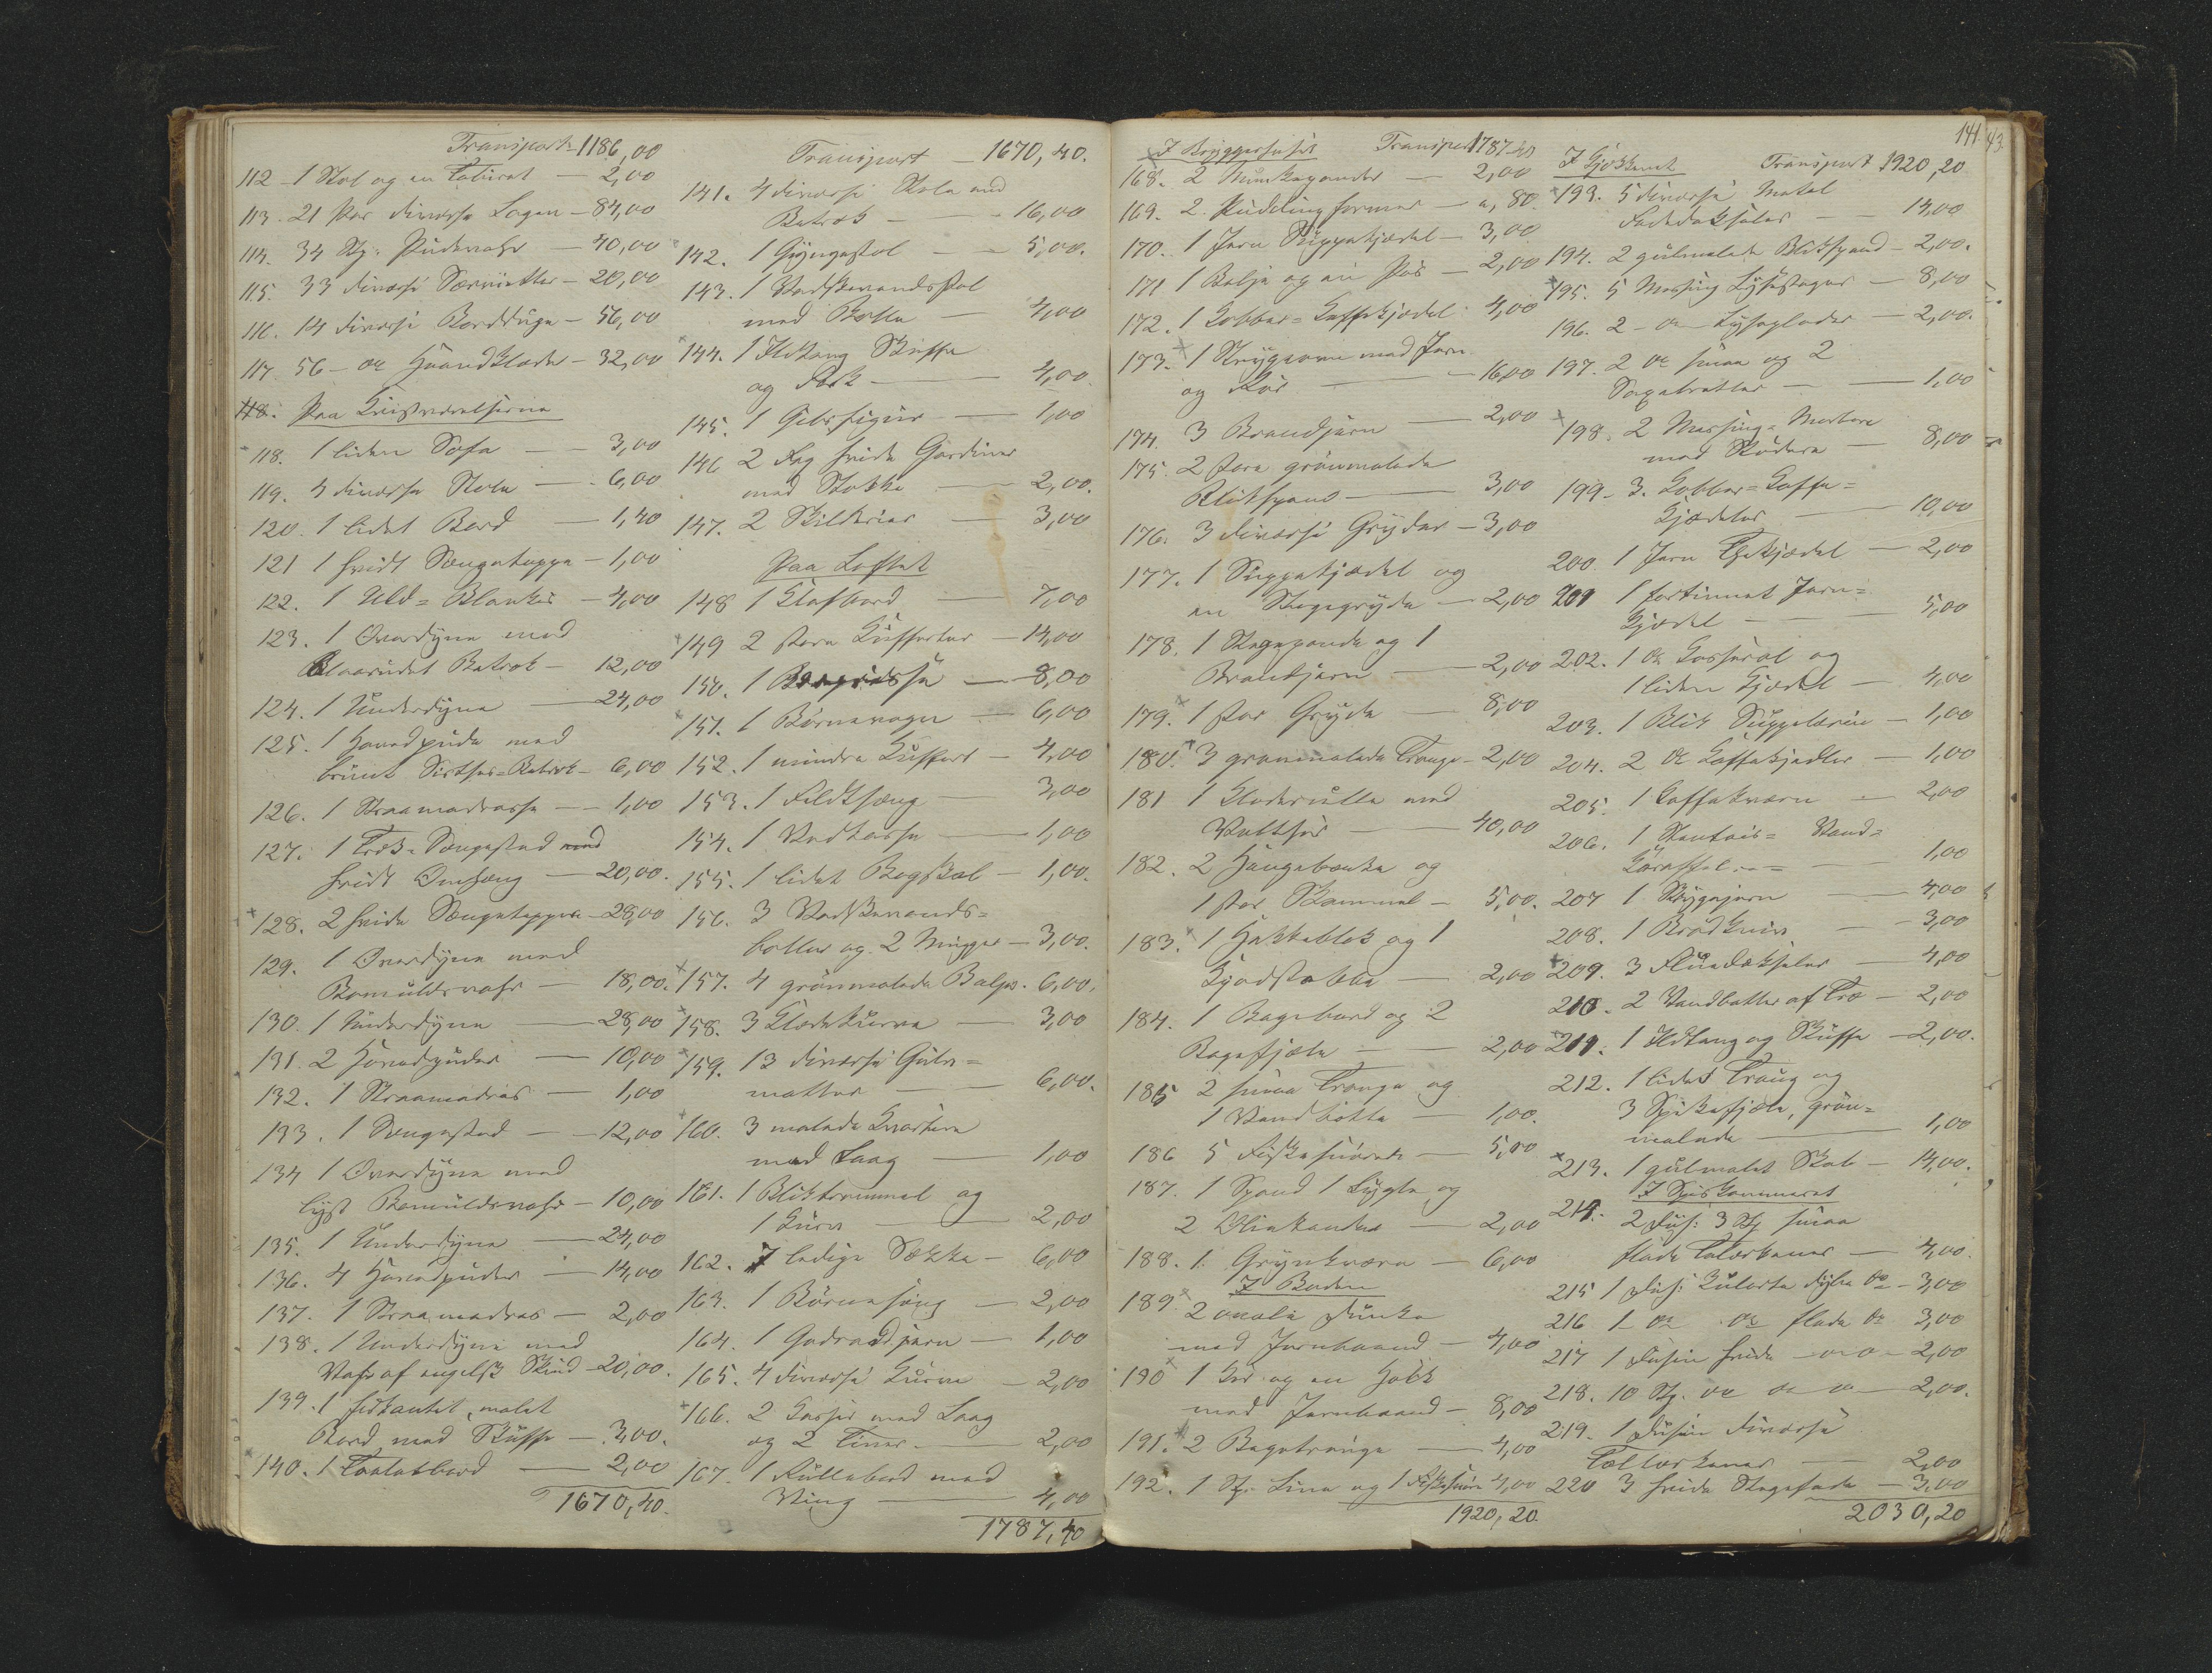 Transport 1186,00
112 1 Stol og en Taburet — 2,00
113. 21 Par diverse Lagen — 84,00
114. 34 St. Pudevahr — 40,00
115. 33 diverse Servietter — 20,00
116. 14 diverse Bordduge — 56,00
117. 56 — do Haandklæder — 32,00
118. Paa Kvistværelserne
118. 1 liden Sofa — 3,00
119. 4 diverse Stole — 6,00
120. 1 lidet Bord — 1,40
121 1 hvidt Sengeteppe — 1,00
122. 1 Uld-Blanket — 4,00
123. 1 Overdyne med
Blaarudet Betræk — 12,00
124. 1 Underdyne — 24,00
125. 1 Hovedpude med
brunt Sirtses-Betræk — 6,00
126. 1 Straamadrasse — 1,00
127. 1 Træk-Sengestad med
hvidt Omhæng — 20,00.
128. 2 hvide Sengetepper — 28,00
129. 1 Overdyne med
Bomuldsvahr — 18,00.
130. 1 Underdyne — 28,00
131. 2 Hovedpuder — 10,00
132. 1 Straamadras — 1,00
133. 1 Sengestad — 12,00
134 1 Overdyne med
lyst Bomuldsvahr — 10,00
135. 1 Underdyne — 24,00
136. 4 Hovedpuder — 14,00
137. 1 Straamadras — 2,00
138. 1 Underdyne med
Vahr af engelsk Skind — 20,00.
139. 1 firkantet, malet
Bord med Skuffe — 3,00.
140. 1 Toiletbord — 2,00
1670,40.
Transport — 1670,40.
141. 4 diverse Stole med
Betræk — 16,00
142. 1 Gyngestol — 5,00.
143. 1 Vaskevandsstol
med Bolle — 4,00
144. 1 Ildtang Skuffe
og Fork — 4,00.
145. 1 Gibsfigur — 1,00
146 2 Fag hvide Gardiner
med Stokke — 2,00.
147. 2 Skilderier — 3,00
Paa Loftet
148 1 Klafbord — 7,00
149 2 store Kufferter — 14,00
150. 1 — 8,00
151. 1 Børnevogn — 6,00
152. 1 mindre Kuffert — 4,00
153. 1 Feldtseng — 3,00
154. 1 Vedkasse — 1,00
155. 1 lidet Bogskab — 1,00.
156. 3 Vaskevands-
boller og 2 Mugger — 3,00.
157. 4 grønmalede Baljer. 6,00.
158. 3 Klædekurve — 3,00
159. 13 diverse Gulv-
matter — 6,00.
160. 3 malede Kvartere
med Laag — 1,00
161. 1 Bliktrommel og
1 Kurv — 2,00
162. 7 ledige Sække — 6,00
163. 1 Børneseng — 2,00
164. 1 Goderaadjern — 1,00
165. 4 diverse Kurve — 2,00
166. 2 Kasser med Laag
og 2 Tiner — 2,00
167. 1 Rullebord med
Ving — 4,00
1787,40
141. 43.
I Bryggerhuset Transport 1787,40
168. 2 Munkepander — 2,00
169. 2. Puddingformer — ", 80.
170. 1 Jern Suppekjædel — 3,00
171 1 Balje og en Pøs — 2,00
172. 1 Kobber-Kaffekjædel. 4,00
173. 1 Strygeovn med Jern
og Rør — 16,00
174. 3 Brandjern — 2,00
175. 2 store grønmalede
Blikspand — 3,00
176. 3 diverse Gryder — 3,00
177. 1 Suppekjædel og
en Stegegryde — 2,00
178. 1 Stegepande og 1
Brandjern — 2,00
179. 1 stor Gryde — 8,00
180. 3 grønmalede Trauge — 2,00
181 1 Klæderulle med
Tilbehør — 40,00
182. 2 Hængebænke og
1 stor Skammel — 5,00.
183. 1 Hakkeblok og 1
Kjødstabbe — 2,00
184. 1 Bagebord og 2
Bagefjæle — 2,00
185 2 smaa Trauge og
1 Vandbøtte — 1,00.
186 5 Fiskesnører — 5,00
187. 1 Spand 1 Lygte og
2 Blikkander — 2,00
188. 1. Grynkværn — 6,00
I Boden
189 2 ovale Dunke
med Jernbaand — 4,00
190 1 Kar og en Holk
med Jernbaand — 8,00
191. 2 Bagetrauge — 4,00
192. 1 St. Line og 1 Fiskesnøre 4,00
1920,20.
I Kjøkkenet Transport 1920,20
193. 5 diverse Metal
Fadedæksler — 14,00
194. 2 gulmalede Blikspand — 2,00.
195. 5 Messing Lysestager — 8,00
196. 2 — do Lyseplader — 2,00.
197. 2 do smaa og 2
Sagtrakter — 1,00
198. 2 Messing-Mortere
med Stødere — 8,00
199. 3. Kobber-Kaffe-
Kjædeler — 10,00
200. 1 Jern Thekjædel — 2,00
201 1 fortinnet Jern-
Kjædel — 5,00
202. 1 do Kasserol og
1 liden Kjædel — 4,00
203. 1 Blik Suppeterrin — 1,00
204. 2 do Kaffekjedler — 1,00
205. 1 Kaffekværn — 2,00
206. 1 Stentøis- Vand-
Karaffel — 1,00
207 1 Strygejern — 4,00
208. 1 Brødkniv — 3,00
209. 3 Fluedæksler — 4,00
210. 2 Vandbøtter af Træ — 2,00
211. 1 Ildtang og Skuffe — 2,00.
212. 1 lidet Traug og
3 Spikefjæle, grøn-
malede — 1,00
213. 1 gulmalet Skab — 14,00.
I Spiskammeret
214. 2 Dus: 3 St smaa
flade Talerkener — 4,00.
215 1 Dus: Kulørte dybe do — 3,00
216 1 do do flade do 3,00
217 1 Dusin hvide — do — 2,00
218. 10 St. do do do — 2,00.
219. 1 Dusin diverse
Tallerkener — 2,00
220 3 hvide Stegefade — 3,00
2030,20